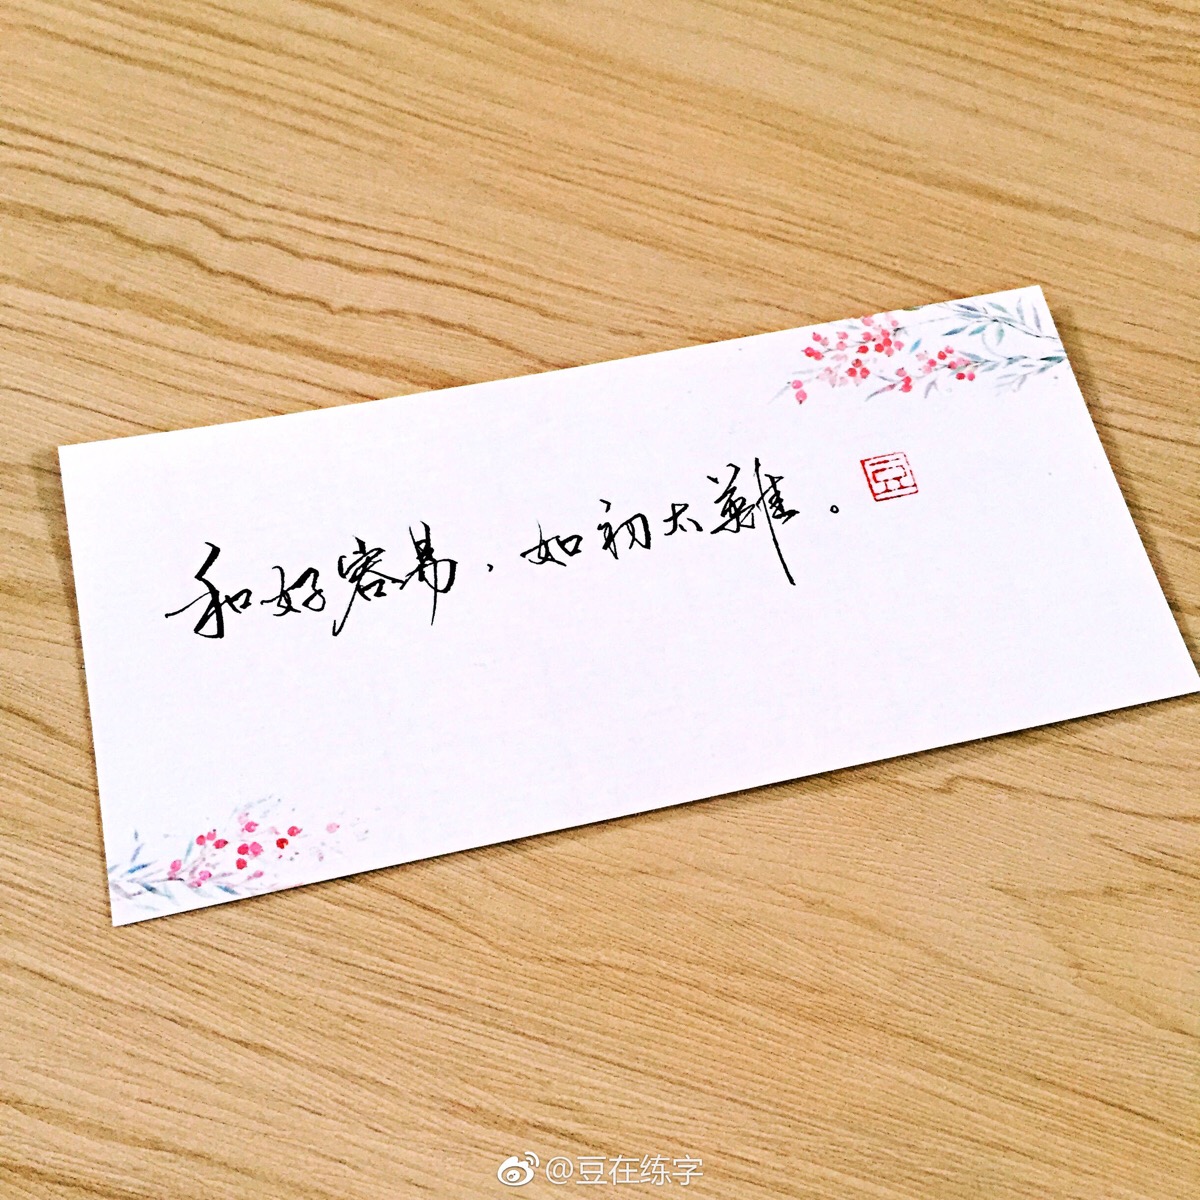 和好容易，如初太難。
豆
@豆在练字